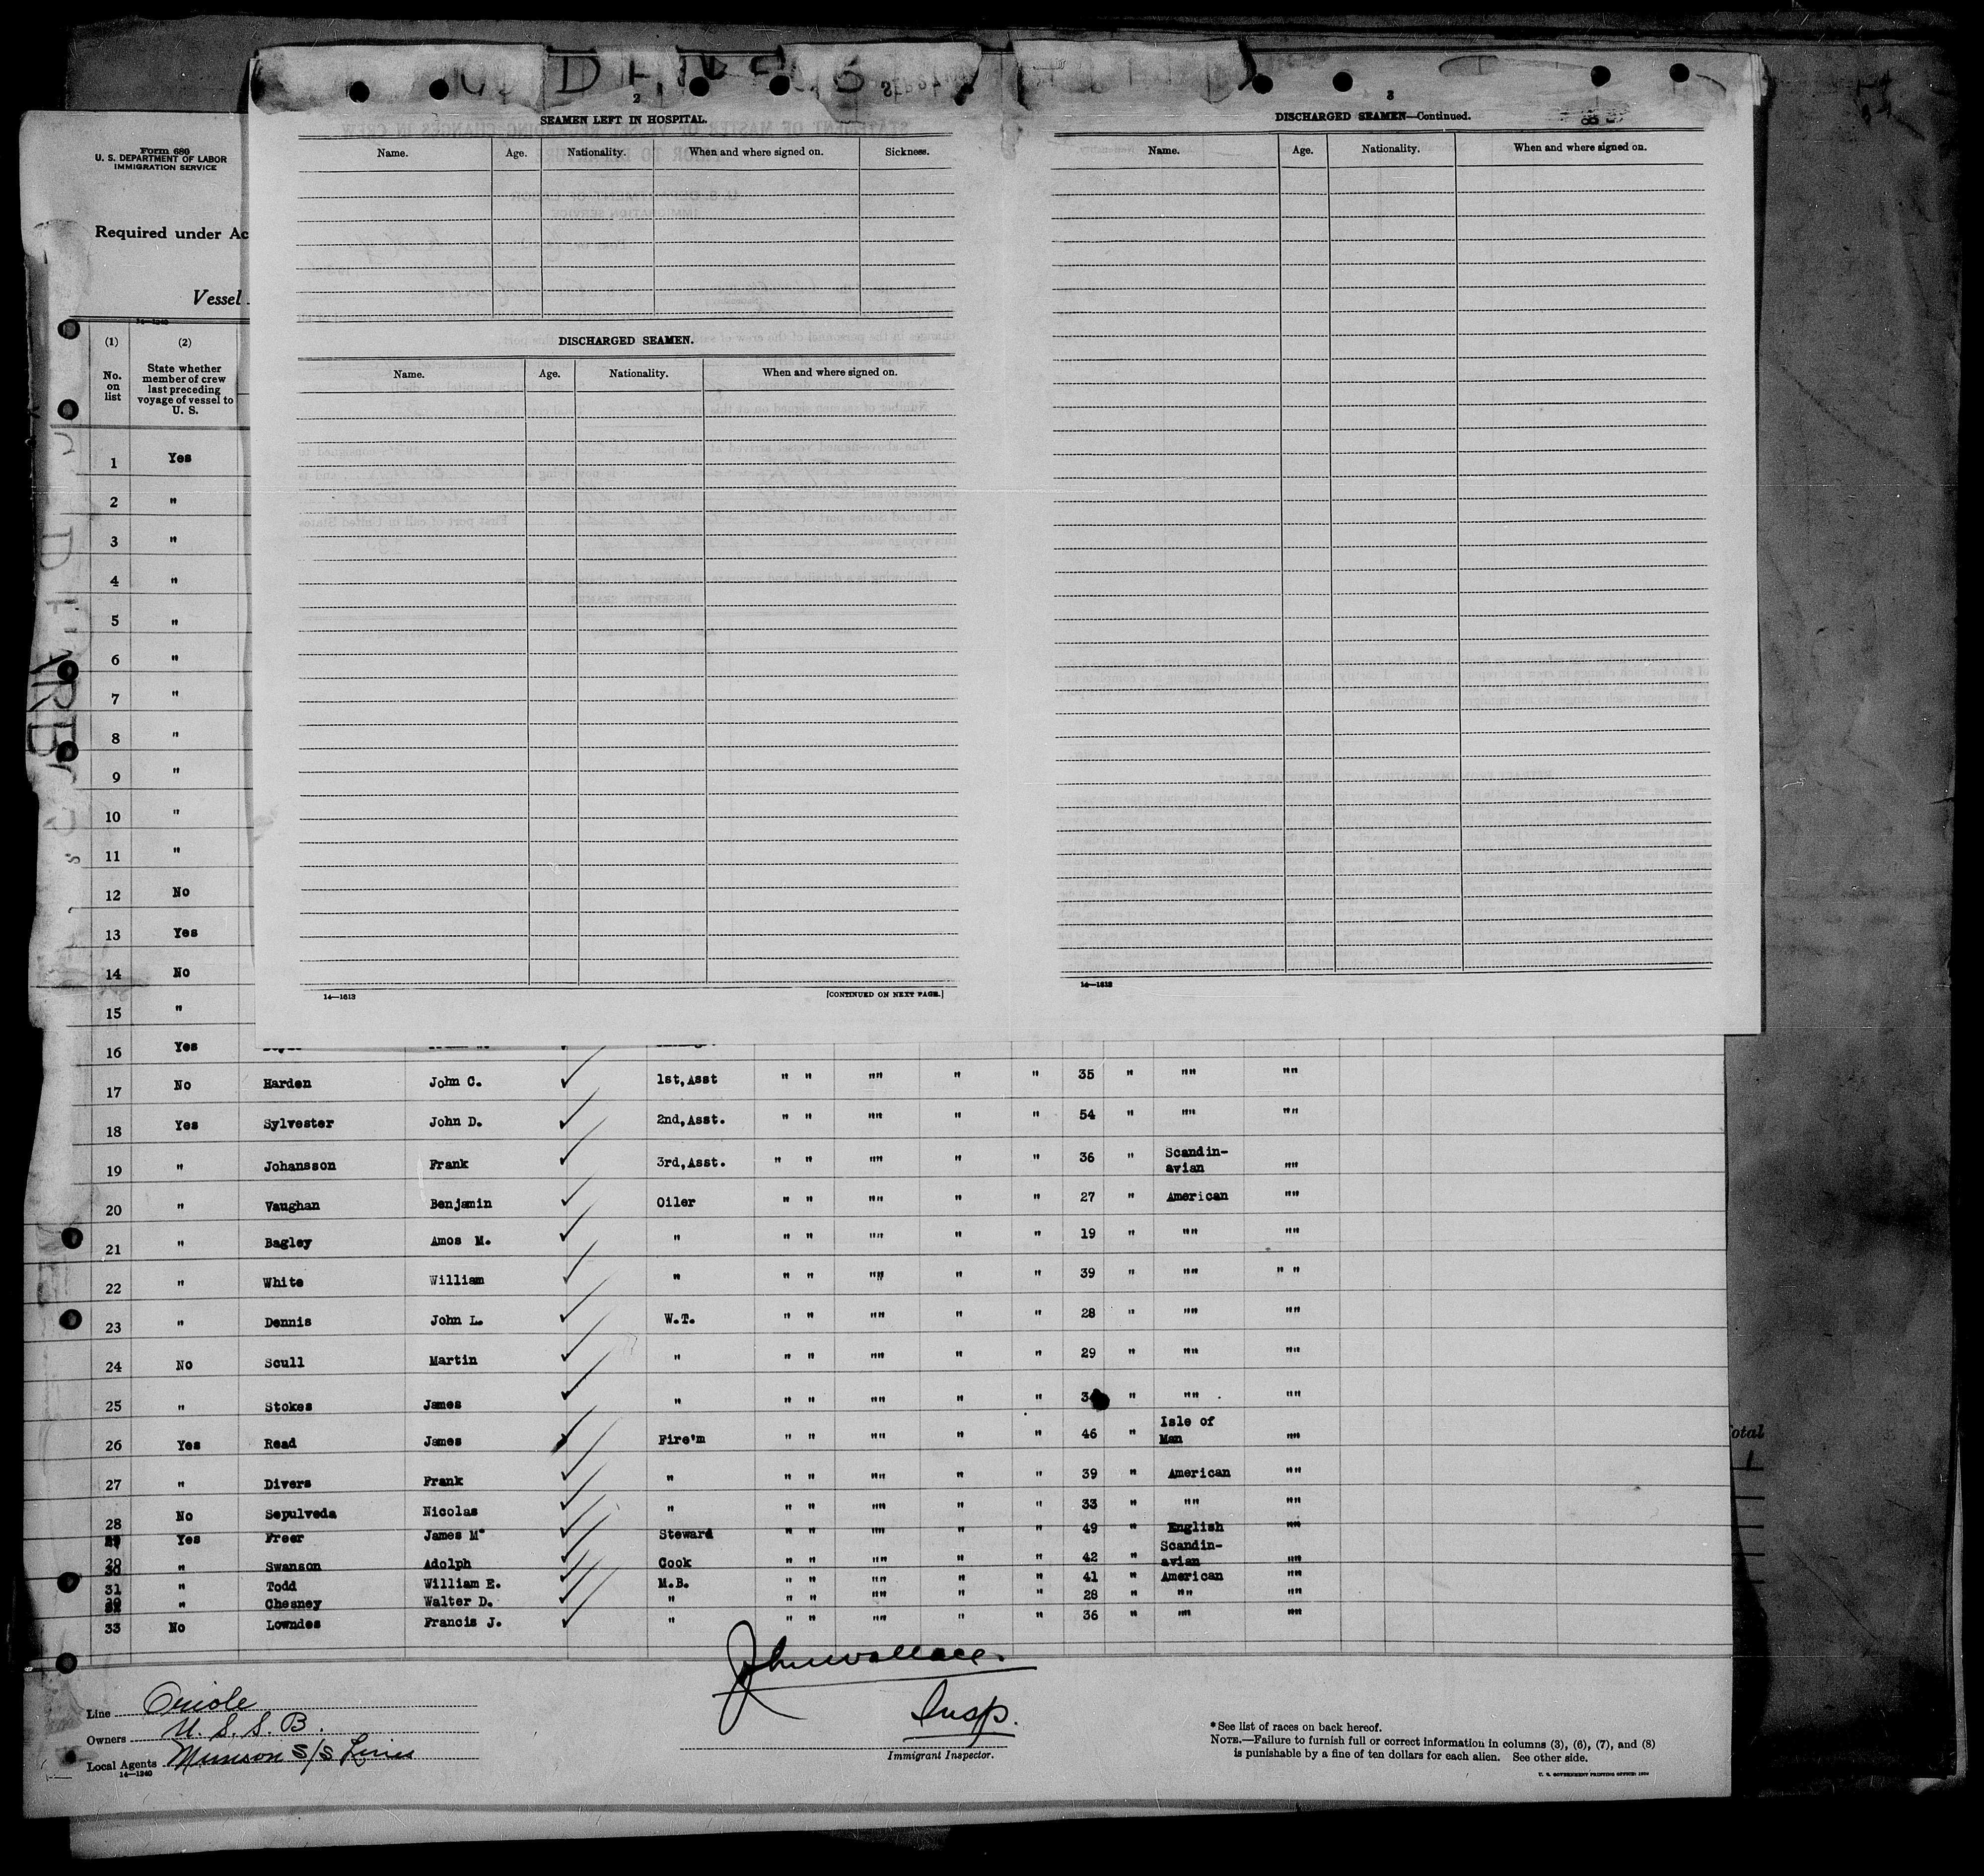 2
SEAMEN LEFT IN HOSPITAL.
Name. Age. Nationality. When and where signed on. Sickness.
DISCHARGED SEAMEN.
Name. Age. Nationality. When and where signed on.
14—1613 [CONTINUED ON NEXT PAGE.]
3
DISCHARGED SEAMEN—Continued.
Name. Age. Nationality. When and where signed on.
14—1613
Form 680
U. S. DEPARTMENT OF LABOR
IMMIGRATION SERVICE
Required under Ac
Vessel
14—1240
(1) (2)
No. on list
State whether member of crew last preceding voyage of vessel to U. S.
1 Yes
2 "
3 "
4 "
5 "
6 "
7 "
8 "
9 "
10 "
11 "
12 No
13 Yes
14 No
15 "
16 Yes
17 No Harden John C. 1st,Asst " " "" " " 35 " "" ""
18 Yes Sylvester John D. 2nd,Asst. " " "" " " 54 " "" ""
19 " Johansson Frank 3rd,Asst. " " "" " " 36 " Scandin-avian ""
20 " Vaughan Benjamin Oiler " " "" " " 27 " American ""
21 " Bagley Amos M. " " " "" " " 19 " "" ""
22 " White William " " " "" " " 39 " "" " "
23 " Dennis John L. W.T. " " "" " " 28 " "" ""
24 No Scull Martin " " " "" " " 29 " "" ""
25 " Stokes James " " " "" " " " "" ""
26 Yes Read James Fire'm " " "" " " 46 " Isle of Man ""
27 " Divers Frank " " " "" " " 39 " American ""
28 No Sepulveda Nicolas " " " "" " " 33 " "" ""
Yes Freer James M" Steward " " "" " " 49 " English ""
30 " Swanson Adolph Cook " " "" " " 42 " Scandin-avian ""
31 " Todd William E. M.B. " " "" " " 41 " American ""
" Chesney Walter D. " " " "" " " 28 " "" ""
33 No Lowndes Francis J. " " " "" " " 36 " "" ""
Total
1
John Wallace.
Insp.
Immigrant Inspector.
Line Oriole
Owners U. S. S. B.
Local Agents Munson S/S Lines
14—1240
*See list of races on back hereof.
NOTE.—Failure to furnish full or correct information in columns (3), (6), (7), and (8)
is punishable by a fine of ten dollars for each alien. See other side.
U. S. GOVERNMENT PRINTING OFFICE: